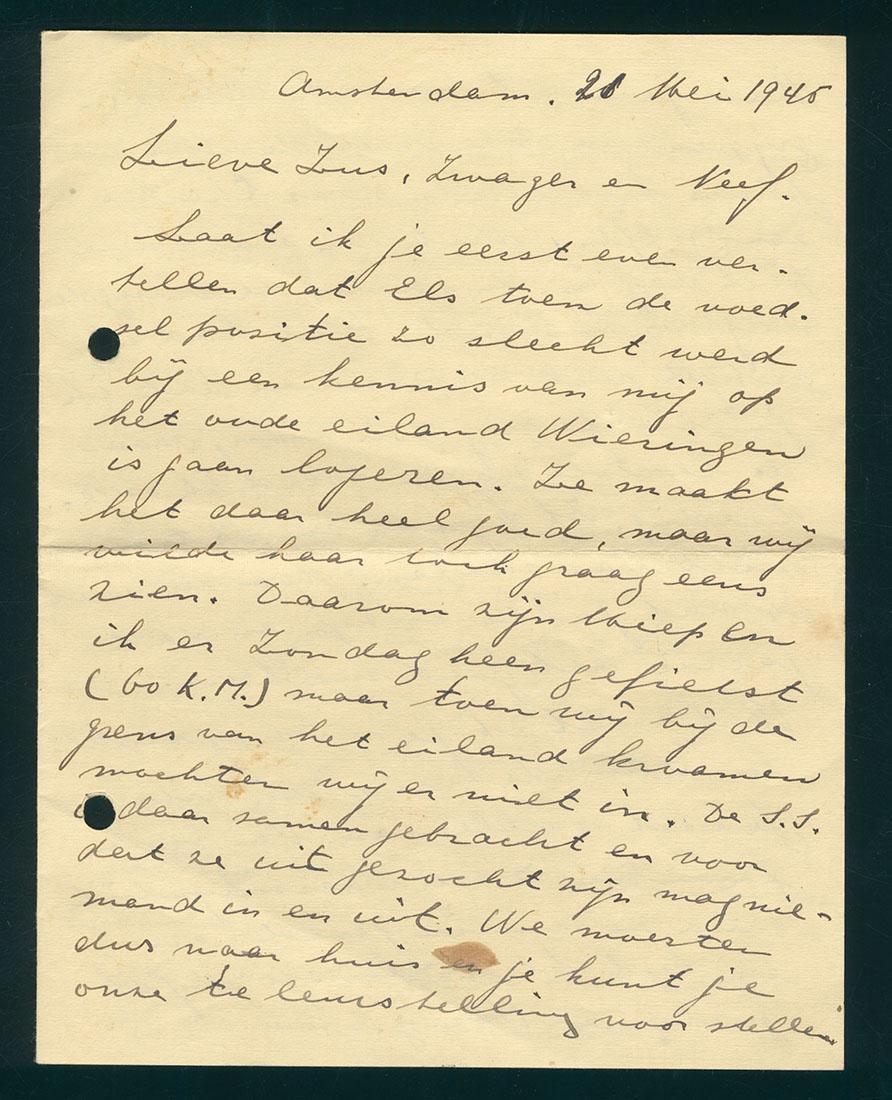 Amsterdam. 21 Mei 1945
Lieve Zus, Zwager en Neef.
Laat ik je eerst even ver-
tellen dat Els toen de voed-
sel positie zo slecht werd
bij een kennis van mij op
het oude eiland Wieringen
is gaan logeren. Ze maakt
het daar heel goed, maar wij
wilde haar toch graag eens
zien. Daarom zijn Miep en
ik er Zondag heen gefietst
(60 K.M.) maar toen wij bij de
grens van het eiland kwamen
mochten wij er niet in. De S.S.
is daar samen gebracht en voor
dat ze uit gezocht zijn mag nie-
mand in en uit. We moesten
dus naar huis en je kunt je
onze te leurstelling voor stellen